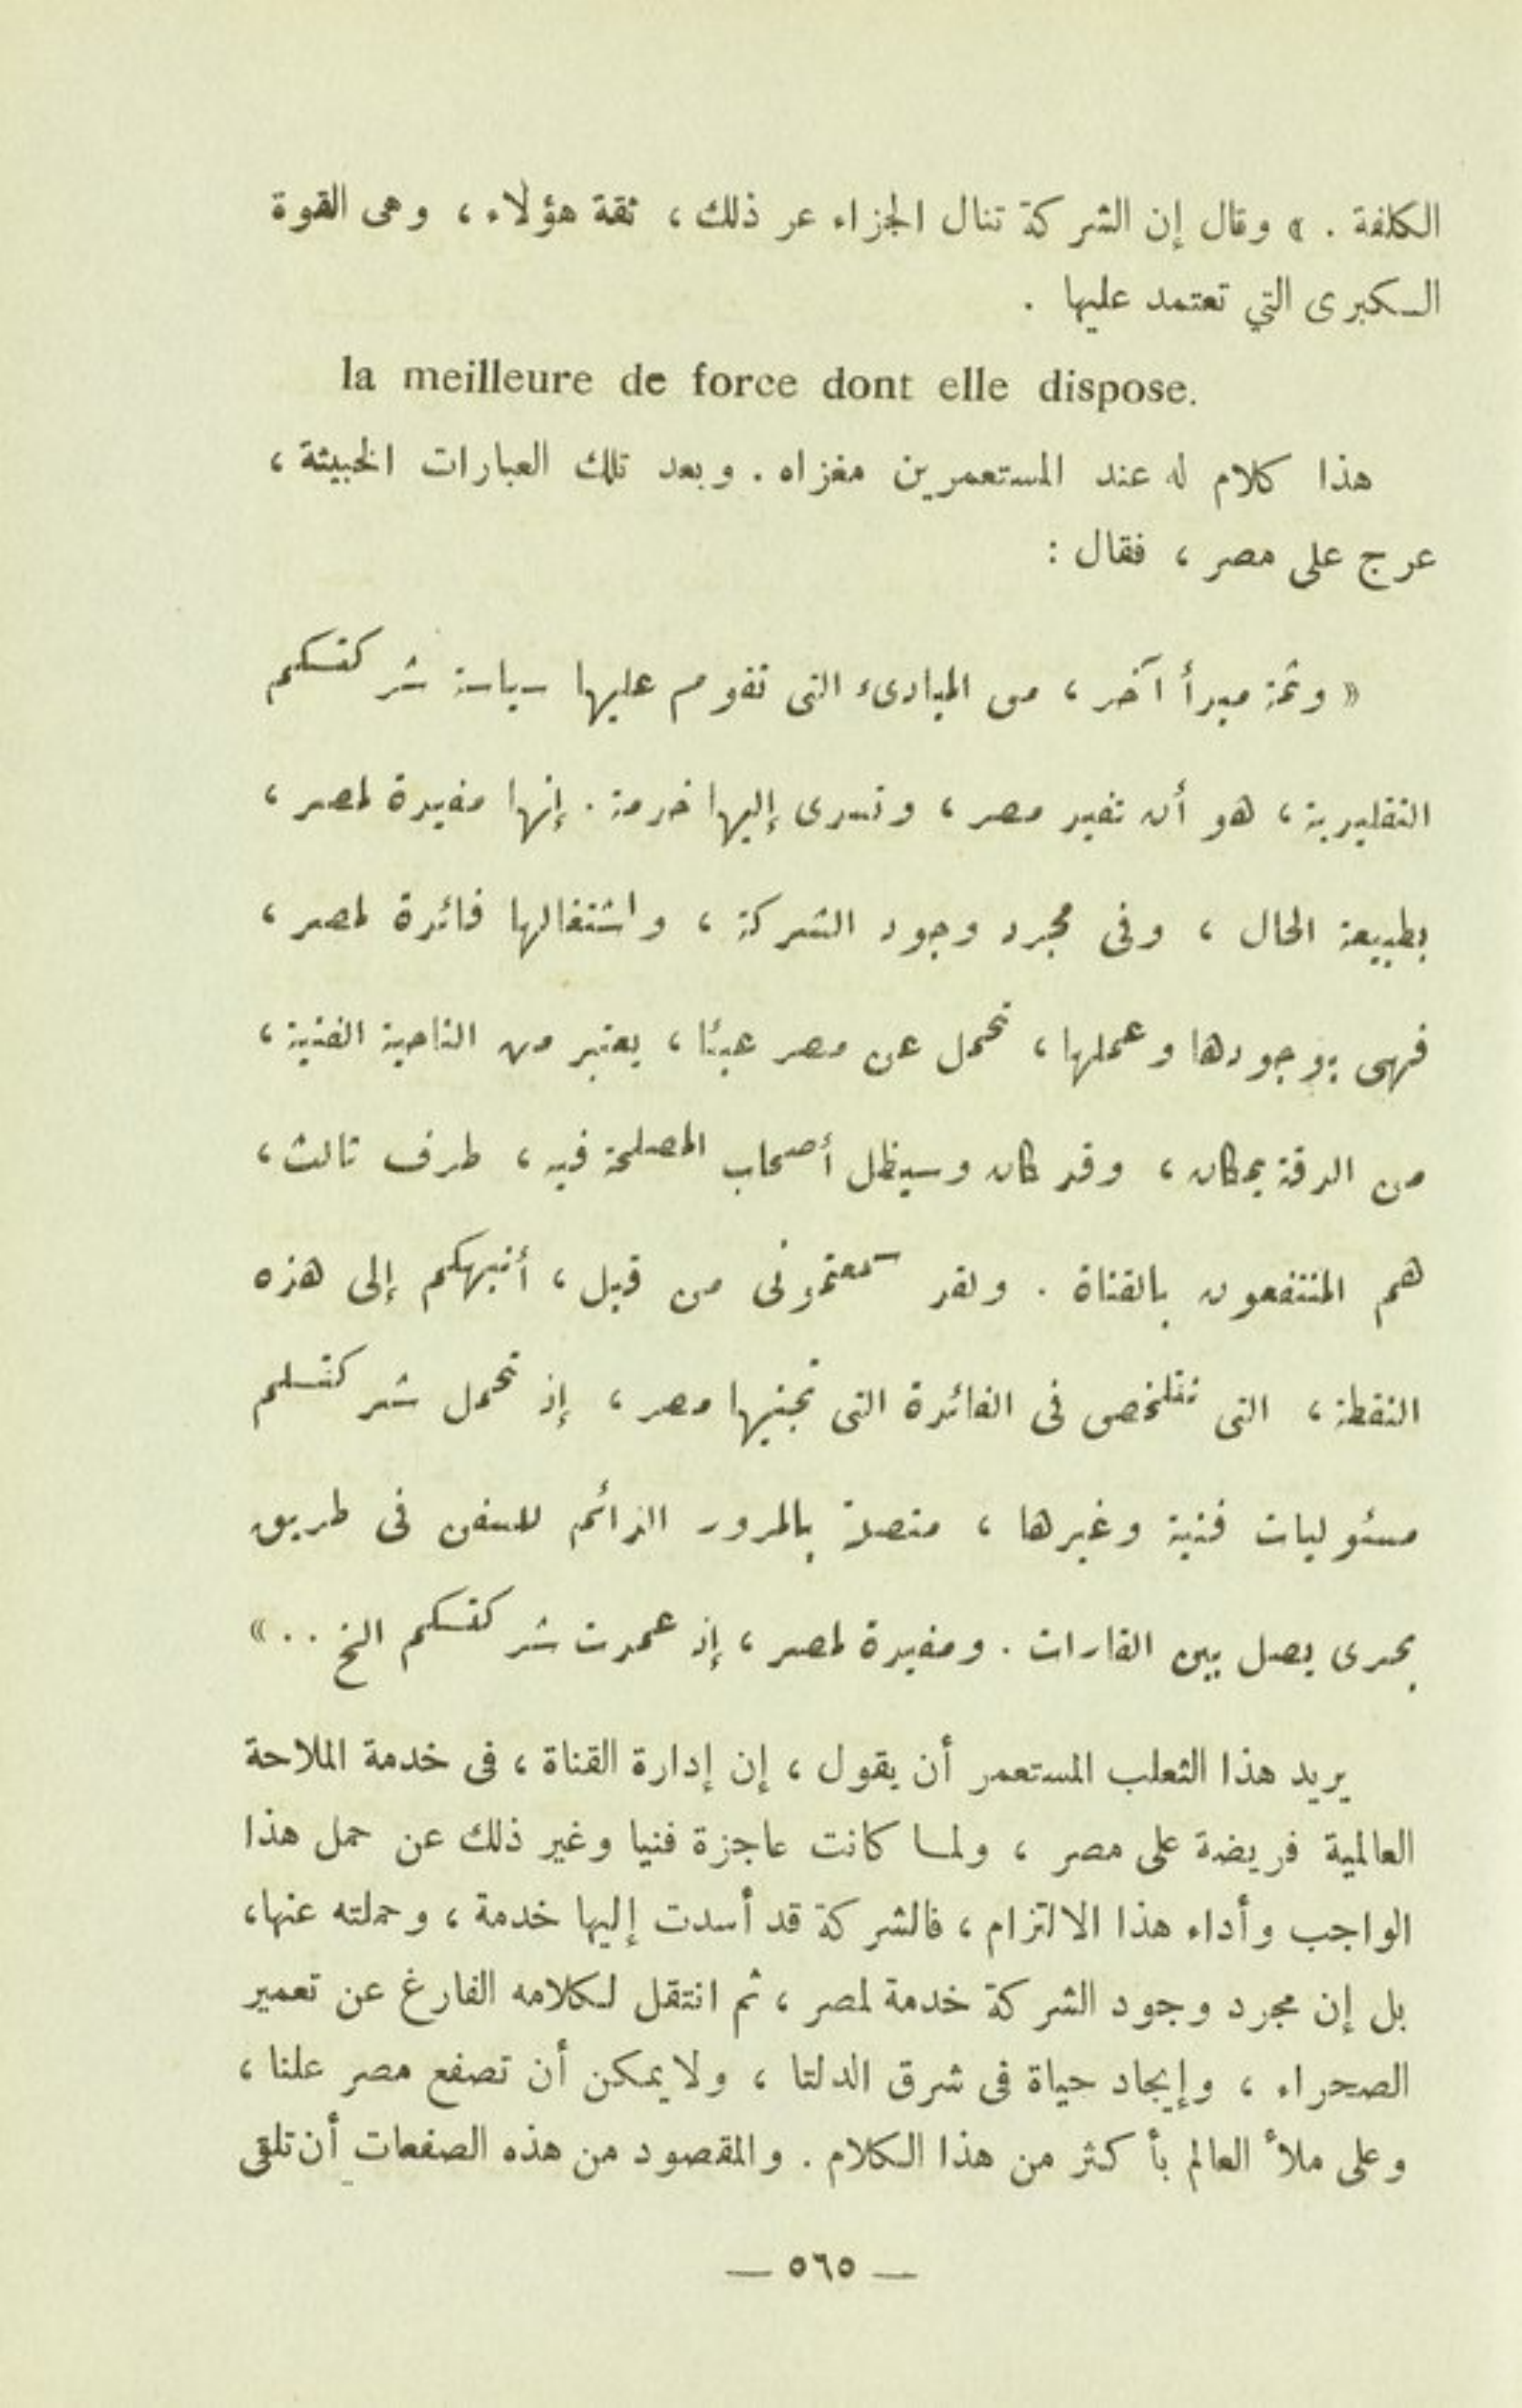 الكلفة . » وقال إن الشركة تنال الجزاء عر ذلك ، ثقة هؤلاء ، وهى القوة
الكبرى التي تعتمد عليها .
la meilleure de force dont elle dispose.
هذا كلام له عند المستعمرين مغزاه . وبعد تلك العبارات الخبيثة ،
عرج على مصر ، فقال :
« وثمة مبدأ آخر ، من المبادىء التى تقوم عليها سياسة شركتكم
التقليدية ، هو أن تفيد مصر ، وتسدى إليها خدمة . إنها مفيدة لمصر ،
بطبيعة الحال ، وفى مجرد وجود الشركة ، واشتغالها فائدة لمصر ،
فهى بوجودها وعملها ، تحمل عن مصر عبئا ، يعتبر من الناحية الفنية ،
من الدقة بمكان ، وقد كان وسيظل أصحاب المصلحة فيه ، طرف ثالث ،
هم المنتفعون بالقناة . ولقد سمعتمونى من قبل ، أنبهكم إلى هذه
النقطة ، التى تتلخص فى الفائدة التى تجنيها مصر ، إذ تحمل شركتكم
مسئوليات فنية وغيرها ، متصلة بالمرور الدائم للسفن فى طريق
بحرى يصل بين القارات . ومفيدة لمصر ، إذ عمدت شركتكم الخ . . »
يريد هذا الثعلب المستعمر أن يقول ، إن إدارة القناة ، فى خدمة الملاحة
العالمية فريضة على مصر ، ولما كانت عاجزة فنيا وغير ذلك عن حمل هذا
الواجب وأداء هذا الالتزام ، فالشركة قد أسدت إليها خدمة ، وحملته عنها،
بل إن مجرد وجود الشركة خدمة لمصر ، ثم انتقل لكلامه الفارغ عن تعمير
الصحراء ، وإيجاد حياة فى شرق الدلتا ، ولا يمكن أن تصفع مصر علنا ،
وعلى ملأ العالم بأكثر من هذا الكلام . والمقصود من هذه الصفعات أن تلقى
— ٥٦٥ —